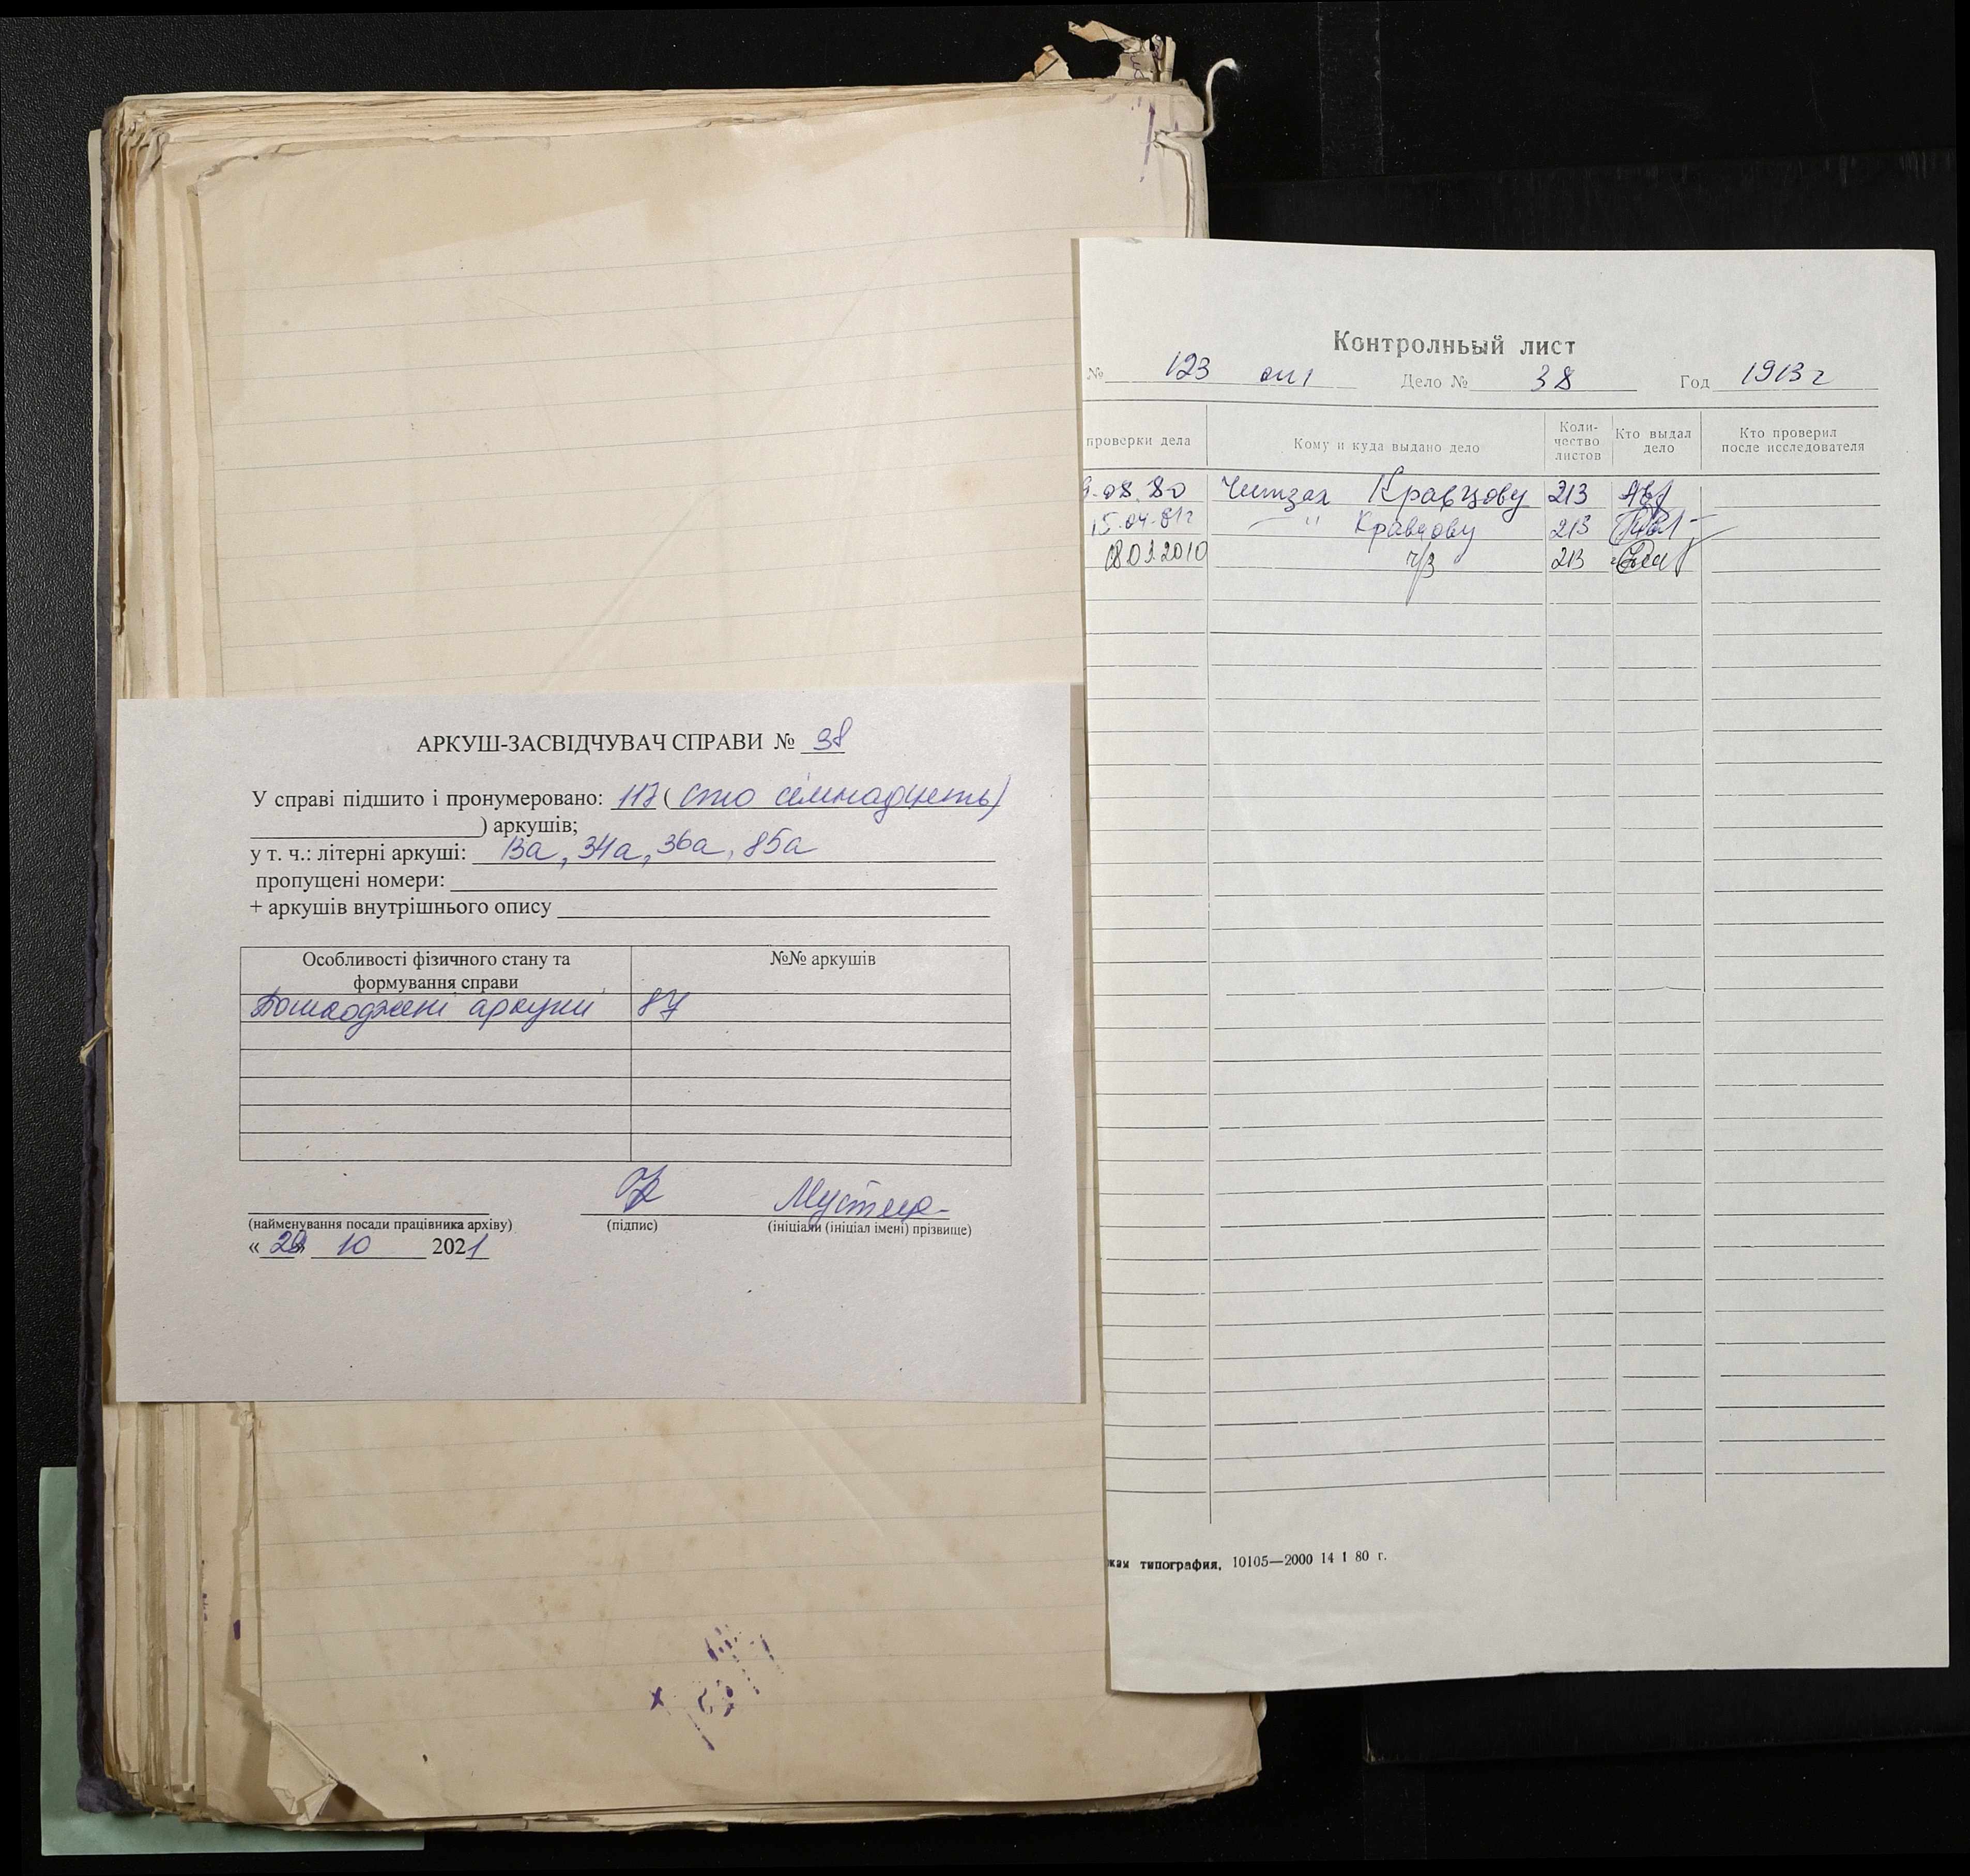 АРКУШ-ЗАСВІДЧУВАЧ СПРАВИ № 38
У справі підшито і пронумеровано: 117 ( сто сімнадцять)
) аркушів;
у т. ч.: літерні аркуші: 13а, 34а, 36а, 85а
пропущені номери:
+ аркушів внутрішнього опису
Особливості фізичного стану та формування справи
№№ аркушів
Пошкоджені аркуші 87
Мустеца
(найменування посади працівника архіву) (підпис) (ініціали (ініціал імені) прізвище)
« 10 2021
Контролньый лист
№ 123 оп 1 Дело № 38 Год 1913 г
проверки дела
Кому и куда выдано дело
Коли-
чество
листов
Кто выдал
дело
Кто проверил
после исследователя
9.08.80 Читзал Кравцову 213
15.04.81г " Кравцову 213
2010 ч/з 213
кая типография, 10105—2000 14 1 80 г.